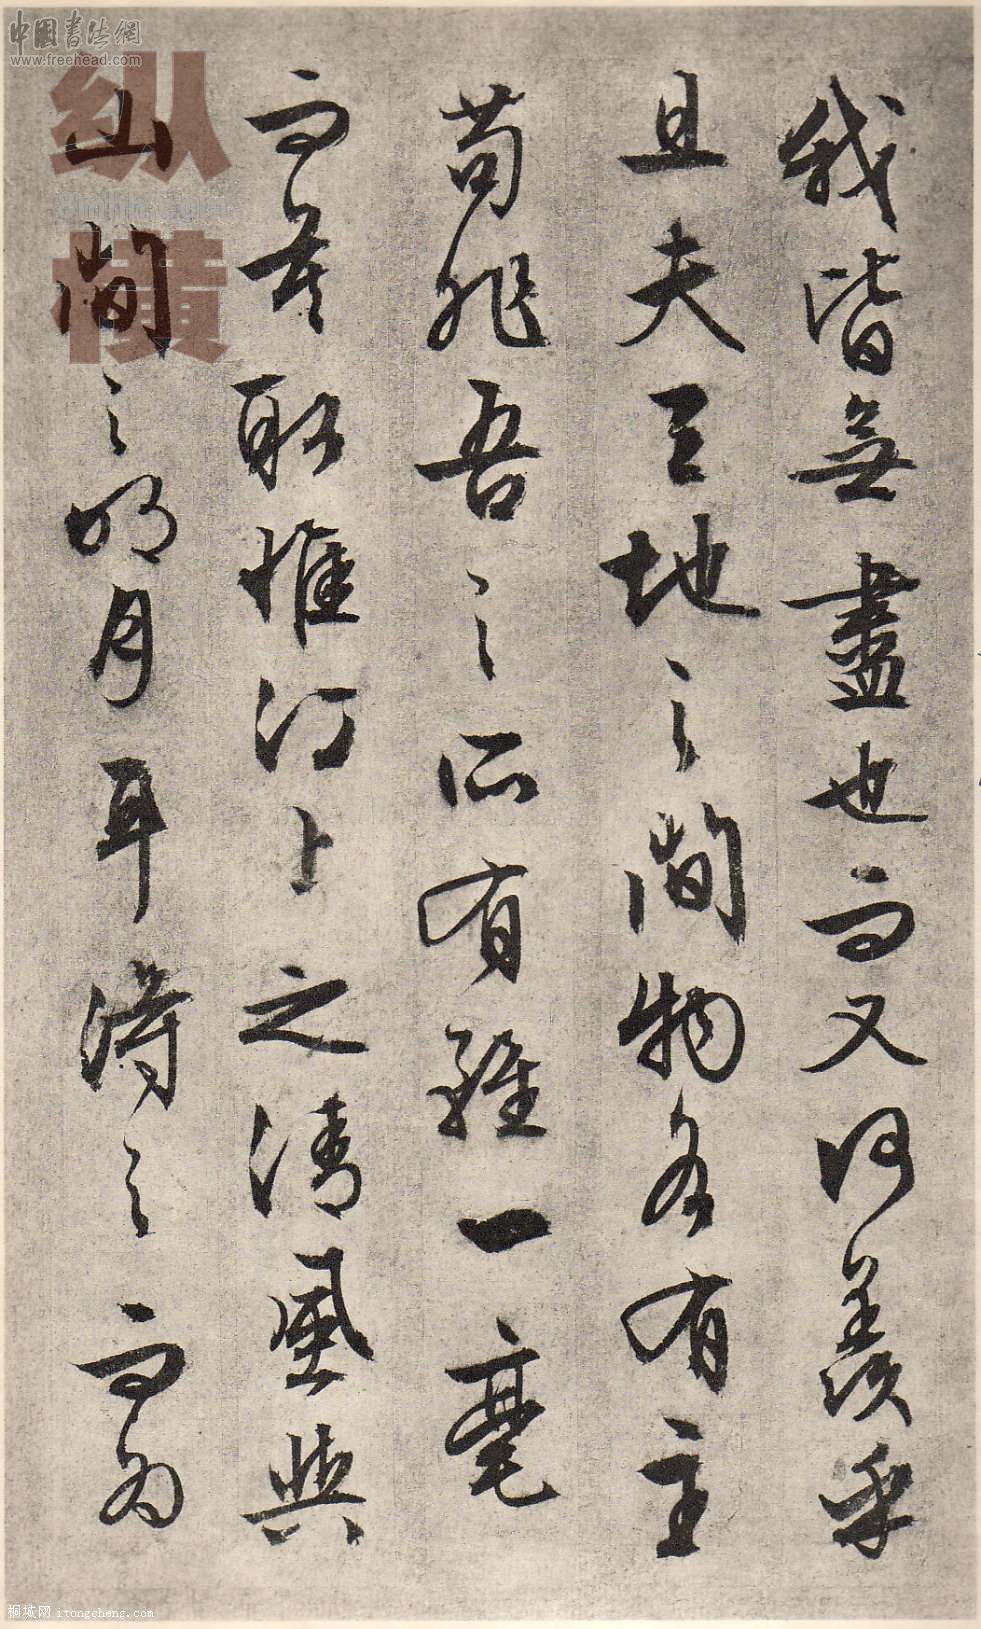 我皆無盡也而又何羨乎
且夫天地之間物各有主
苟非吾之所有雖一毫
而莫取惟江上之清風與
山間之明月耳得之而為
中國書法網
www.freehead.com
纵
横
桐城网 itongcheng.com